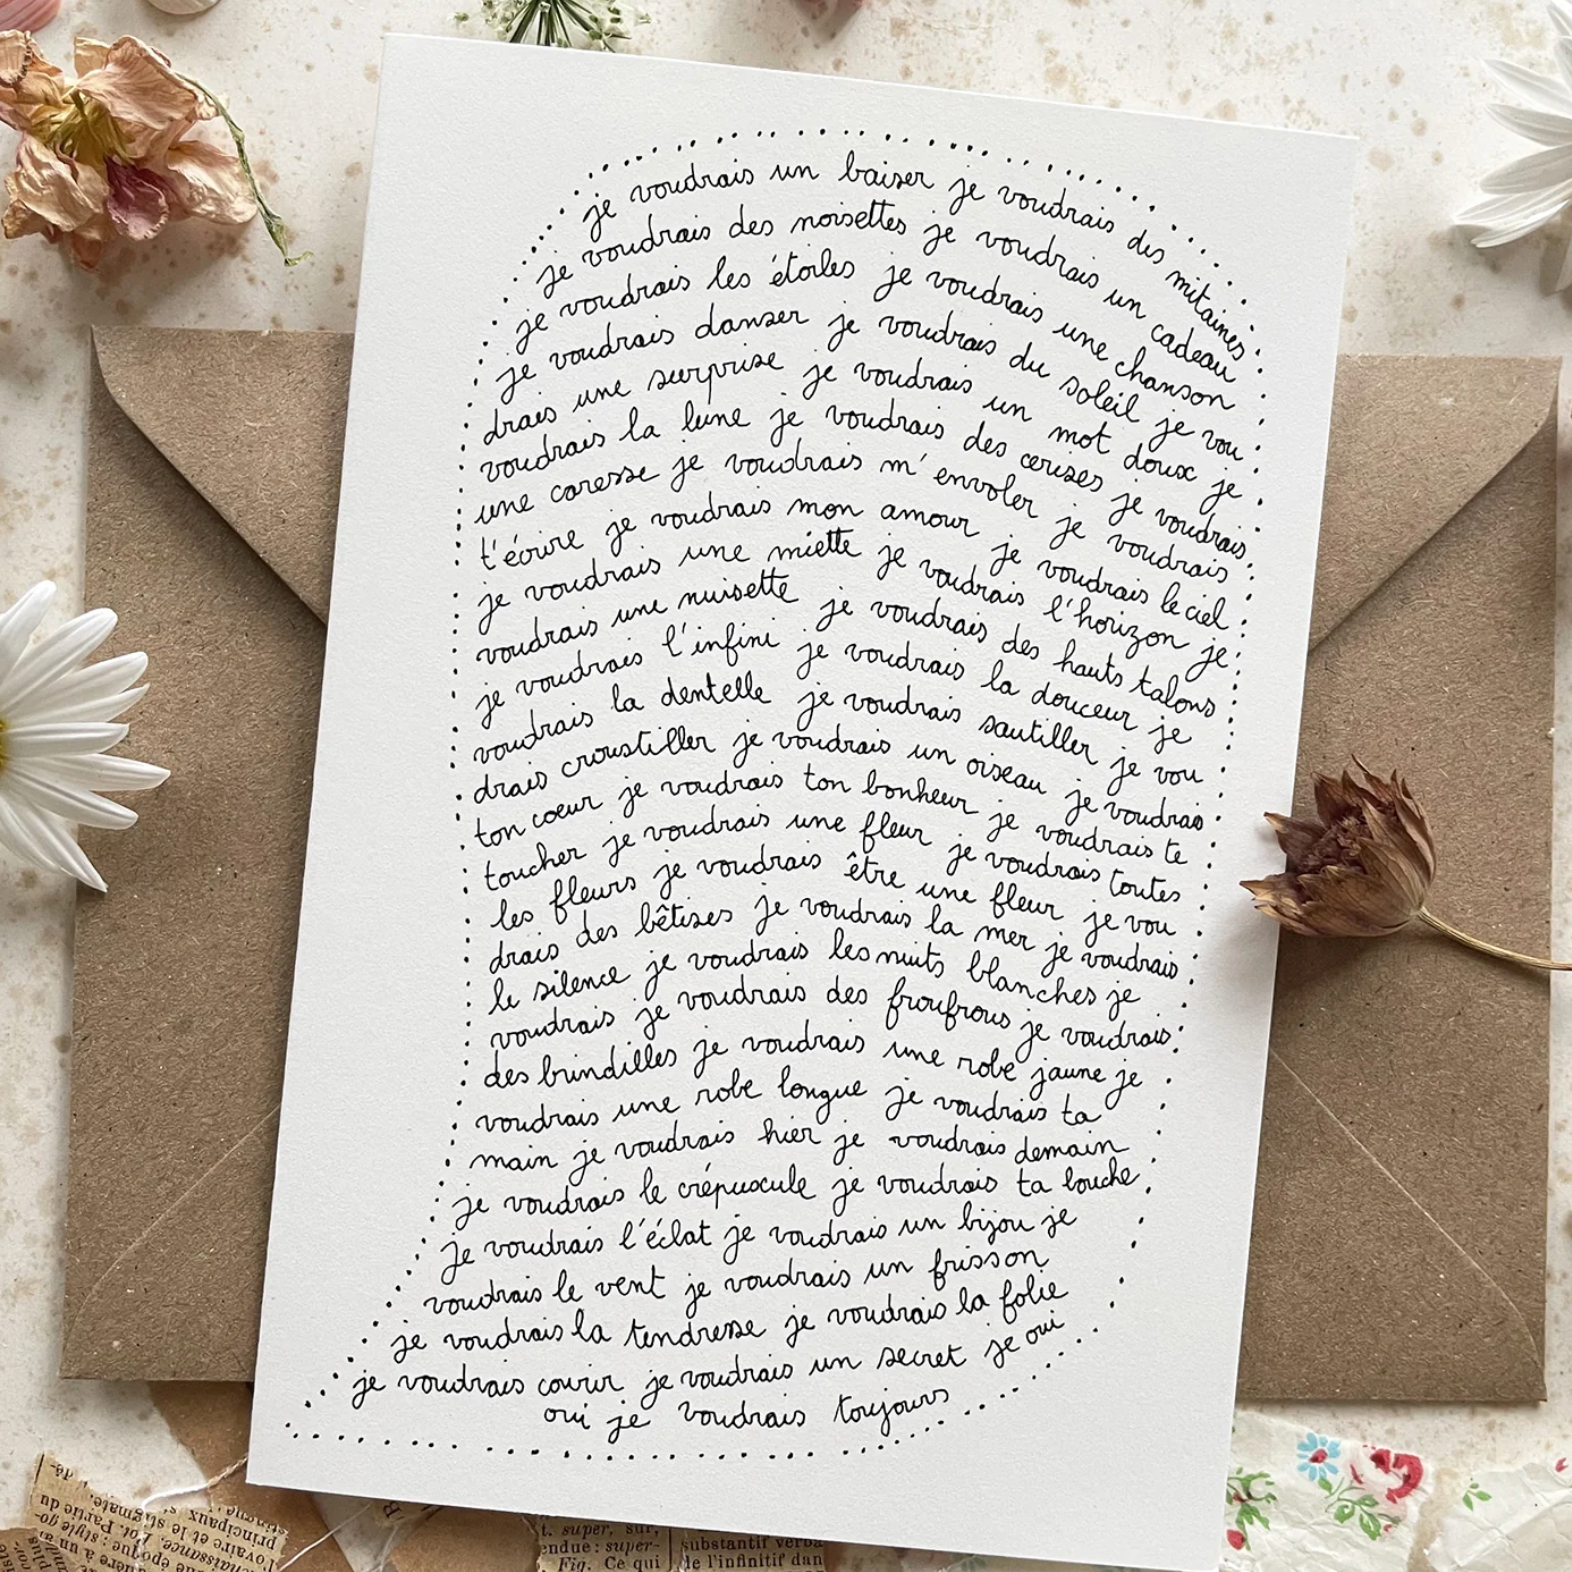 je voudrais un baiser je voudrais des mitaines
je voudrais des noisettes je voudrais un cadeau
je voudrais les étoiles je voudrais une chanson
je voudrais danser je voudrais du soleil je vou
drais une surprise je voudrais un mot doux je
voudrais la lune je voudrais des cerises je voudrais
une caresse je voudrais m'envoler je voudrais
t'écrire je voudrais mon amour je voudrais le ciel
je voudrais une miette je voudrais l'horizon je
voudrais une nuisette je voudrais des hauts talons
je voudrais l'infini je voudrais la douceur je
voudrais la dentelle je voudrais sautiller je vou
drais croustiller je voudrais un oiseau je voudrais
ton coeur je voudrais ton bonheur je voudrais te
toucher je voudrais une fleur je voudrais toutes
les fleurs je voudrais être une fleur je vou
drais des bêtises je voudrais la mer je voudrais
le silence je voudrais les nuits blanches je
voudrais je voudrais des froufrous je voudrais
des brindilles je voudrais une robe jaune je
voudrais une robe longue je voudrais ta
main je voudrais hier je voudrais demain
je voudrais le crépuscule je voudrais ta bouche
je voudrais l'éclat je voudrais un bijou je
voudrais le vent je voudrais un frisson
je voudrais la tendresse je voudrais la folie
je voudrais courir je voudrais un secret je oui
oui je voudrais toujours
principaux
Pot. Partie du
style go-
époque
t. super, sur,
endue : super-
Fig. Ce qui
substantif verba
de l'infinitif dan